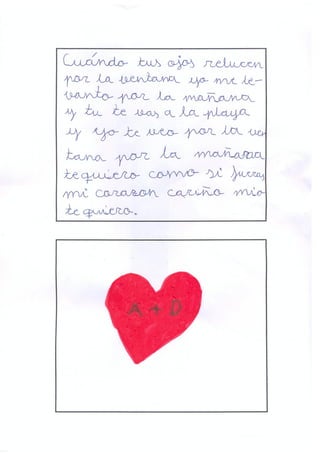 Cuándo tus ojos relucen
por la ventana yo me le-
vanto por la mañana
y tu te vas a la playa
y yo te veo por la ven
tana por la mañana
te quiero como si fueras
mi corazon cariño mio
te quiero.
A + D